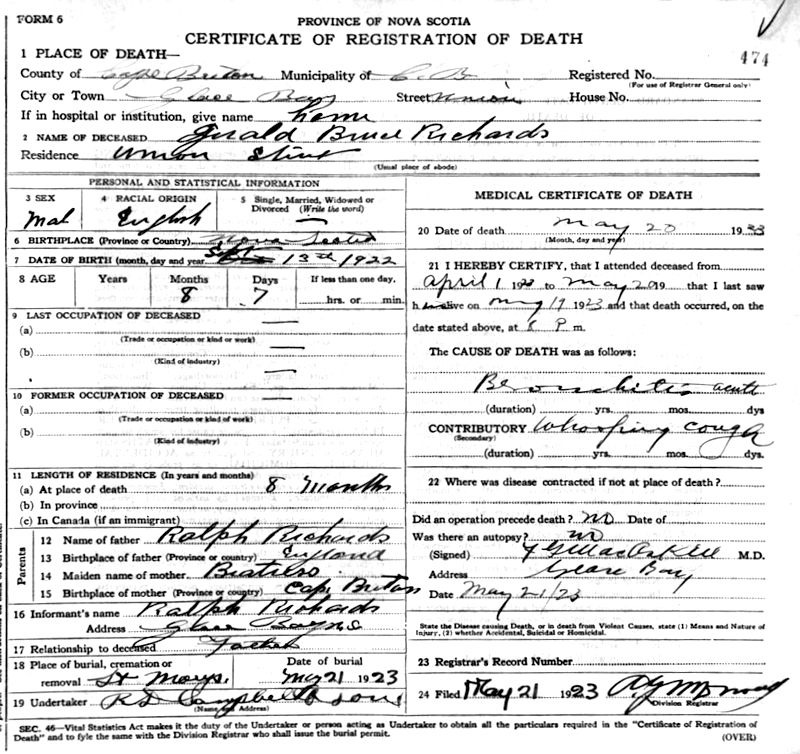 FORM 6
PROVINCE OF NOVA SCOTIA
CERTIFICATE OF REGISTRATION OF DEATH
474
1 PLACE OF DEATH—
County of Cape Breton Municipality of C. B. Registered No.
(For use of Registrar General only)
City or Town Glace Bay Street Union House No.
If in hospital or institution, give name home
2 NAME OF DECEASED Gerald Bruce Richards
Residence Union Street
(Usual place of abode)
PERSONAL AND STATISTICAL INFORMATION
3 SEX 4 RACIAL ORIGIN 5 Single, Married, Widowed or Divorced (Write the word)
Mal English —
6 BIRTHPLACE (Province or Country) Nova Scotia
7 DATE OF BIRTH (month, day and year) Sept 13th 1922
8 AGE Years Months Days If less than one day,
8 7 hrs. or min.
9 LAST OCCUPATION OF DECEASED —
(a)
(Trade or occupation or kind or work)
(b) —
(Kind of industry)
10 FORMER OCCUPATION OF DECEASED —
(a)
(Trade or occupation or kind of work)
(b)
(Kind of industry)
11 LENGTH OF RESIDENCE (In years and months)
(a) At place of death 8 Months
(b) In province
(c) In Canada (if an immigrant)
Parents
12 Name of father Ralph Richards
13 Birthplace of father (Province or country) England
14 Maiden name of mother
15 Birthplace of mother (Province or country) Cape Breton
16 Informant's name Ralph Richards
Address Glace Bay N.S
17 Relationship to deceased Father
18 Place of burial, cremation or removal St Marys. Date of burial May 21 1923
19 Undertaker R D Campbell & Sons
(Name and Address)
MEDICAL CERTIFICATE OF DEATH
20 Date of death May 20 1923
(Month, day and year)
21 I HEREBY CERTIFY, that I attended deceased from
April 1 1923 to May 20 19 that I last saw
h alive on May 19 1923 and that death occurred, on the
date stated above, at P. m.
The CAUSE OF DEATH was as follows:
Bronchitis acute
(duration) yrs. mos. dys
CONTRIBUTORY Whooping Cough
(Secondary)
(duration) yrs. mos. dys.
22 Where was disease contracted if not at place of death?
Did an operation precede death? no Date of
Was there an autopsy? no
(Signed) M.D.
Address Glace Bay
Date May 21/23
State the Disease causing Death, or in death from Violent Causes, state (1) Means and Nature of Injury, (2) whether Accidental, Suicidal or Homicidal.
23 Registrar's Record Number
24 Filed May 21 1923
Division Registrar
SEC. 46—Vital Statistics Act makes it the duty of the Undertaker or person acting as Undertaker to obtain all the particulars required in the "Certificate of Registration of
Death" and to fyle the same with the Division Registrar who shall issue the burial permit. (OVER)